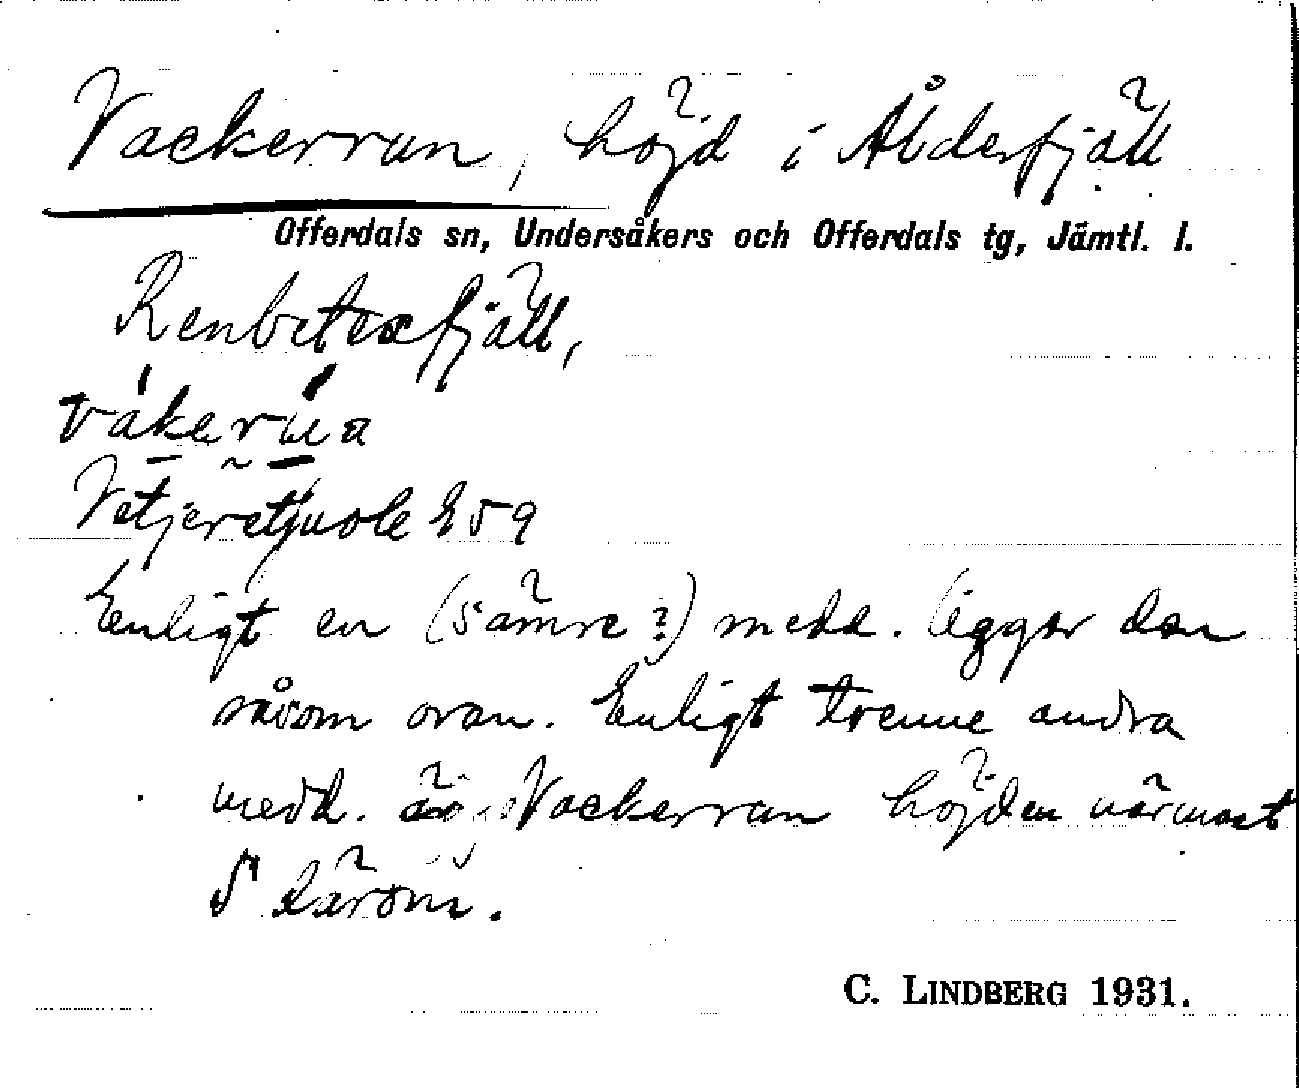 Vackerran, höjd i Ålderfjäll
Offerdals sn, Undersåkers och Offerdals tg, Jämtl. l.
Renbetesfjäll,
Vetjeretjuole E59
Enligt en (sämre?) medd. ligger den
såsom ovan. Enligt trenne andra
medd. är Vackerran höjden närmast
S därom.
C. LINDBERG 1931.